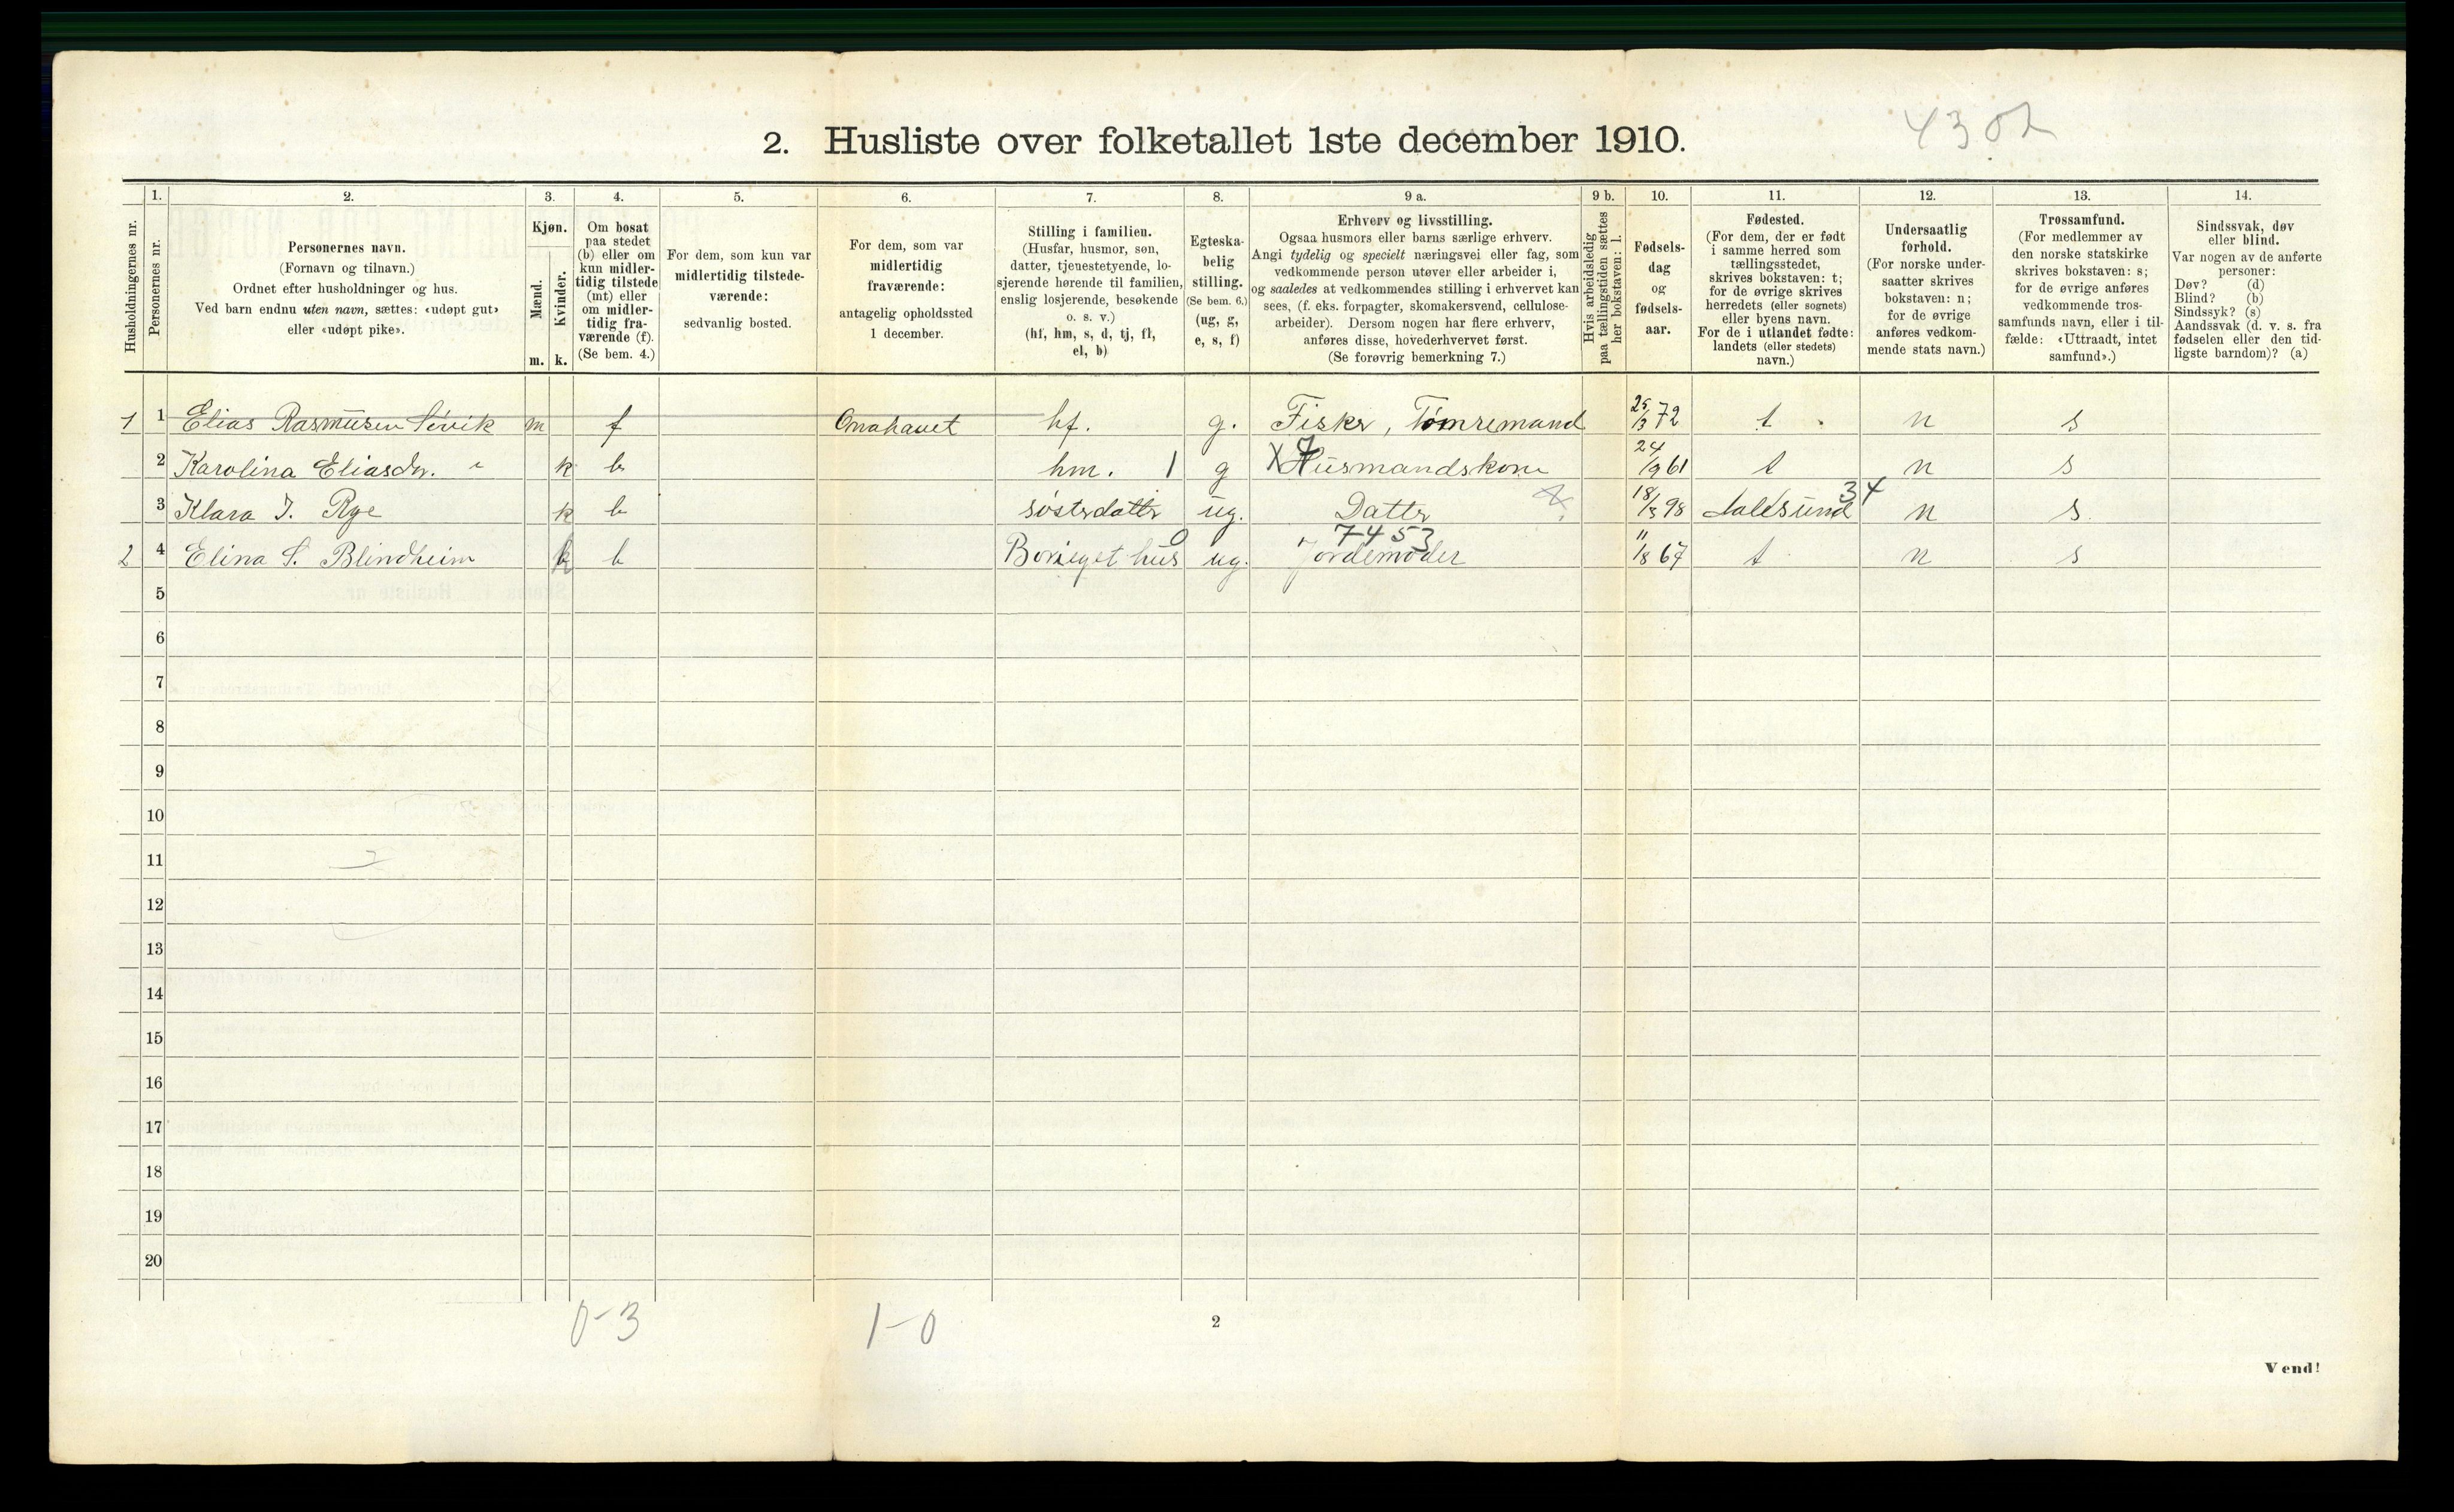 4302
2. Husliste over folketallet 1ste december 1910.
Husholdningernes nr.
1.
Personernes nr.
2.
Personernes navn.
(Fornavn og tilnavn.)
Ordnet efter husholdninger og hus.
Ved barn endnu uten navn, sættes: «udøpt gut»
eller «udøpt pike».
3.
Kjøn.
Mænd.
Kvinder.
m. k.
4.
Om bosat
paa stedet
(b) eller om
kun midler-
tidig tilstede
(mt) eller
om midler-
tidig fra-
værende (f).
(Se bem. 4.)
5.
For dem, som kun var
midlertidig tilstede-
værende:
sedvanlig bosted.
6.
For dem, som var
midlertidig
fraværende:
antagelig opholdssted
1 december.
7.
Stilling i familien.
(Husfar, husmor, søn,
datter, tjenestetyende, lo-
sjerende hørende til familien,
enslig losjerende, besøkende
o. s. v.)
(hf, hm, s, d, tj, fl,
el, b)
8.
Egteska-
belig
stilling.
(Se bem. 6.)
(ug, g,
e, s, f)
9 a.
Erhverv og livsstilling.
Ogsaa husmors eller barns særlige erhverv.
Angi tydelig og specielt næringsvei eller fag, som
vedkommende person utøver eller arbeider i,
og saaledes at vedkommendes stilling i erhvervet kan
sees, (f. eks. forpagter, skomakersvend, cellulose-
arbeider). Dersom nogen har flere erhverv,
anføres disse, hovederhvervet først.
(Se forøvrig bemerkning 7.)
9 b.
Hvis arbeidsledig
paa tællingstiden sættes
her bokstaven: l.
10.
Fødsels-
dag
og
fødsels-
aar.
11.
Fødested.
(For dem, der er født
i samme herred som
tællingsstedet,
skrives bokstaven: t;
for de øvrige skrives
herredets (eller sognets)
eller byens navn.
For de i utlandet fødte:
landets (eller stedets)
navn.)
12.
Undersaatlig
forhold.
(For norske under-
saatter skrives
bokstaven: n;
for de øvrige
anføres vedkom-
mende stats navn.)
13.
Trossamfund.
(For medlemmer av
den norske statskirke
skrives bokstaven: s;
for de øvrige anføres
vedkommende tros-
samfunds navn, eller i til-
fælde: «Uttraadt, intet
samfund».)
14.
Sindssvak, døv
eller blind.
Var nogen av de anførte
personer:
Døv? (d)
Blind? (b)
Sindssyk? (s)
Aandssvak (d. v. s. fra
fødselen eller den tid-
ligste barndom)? (a)
1 1 Elias Rasmusen m f Onahavet hf. g. Fisker, Tømremand 25/3 72 t n s
2 Karolina Eliasdr. " k b hm. 1 g X 7 Husmandskone 24/9 61 t n s
3 Klara J. Rye k b søsterdatter ug. Datter 18/3 98 Aalesund 34 n s
2 4 Elina S. Blindheim k b Bor i eget hus 0 ug. 7453 Jordemoder 11/8 67 t n s
5
6
7
8
9
10
11
12
13
14
15
16
17
18
19
20
0-3 1-0
2
Vend!